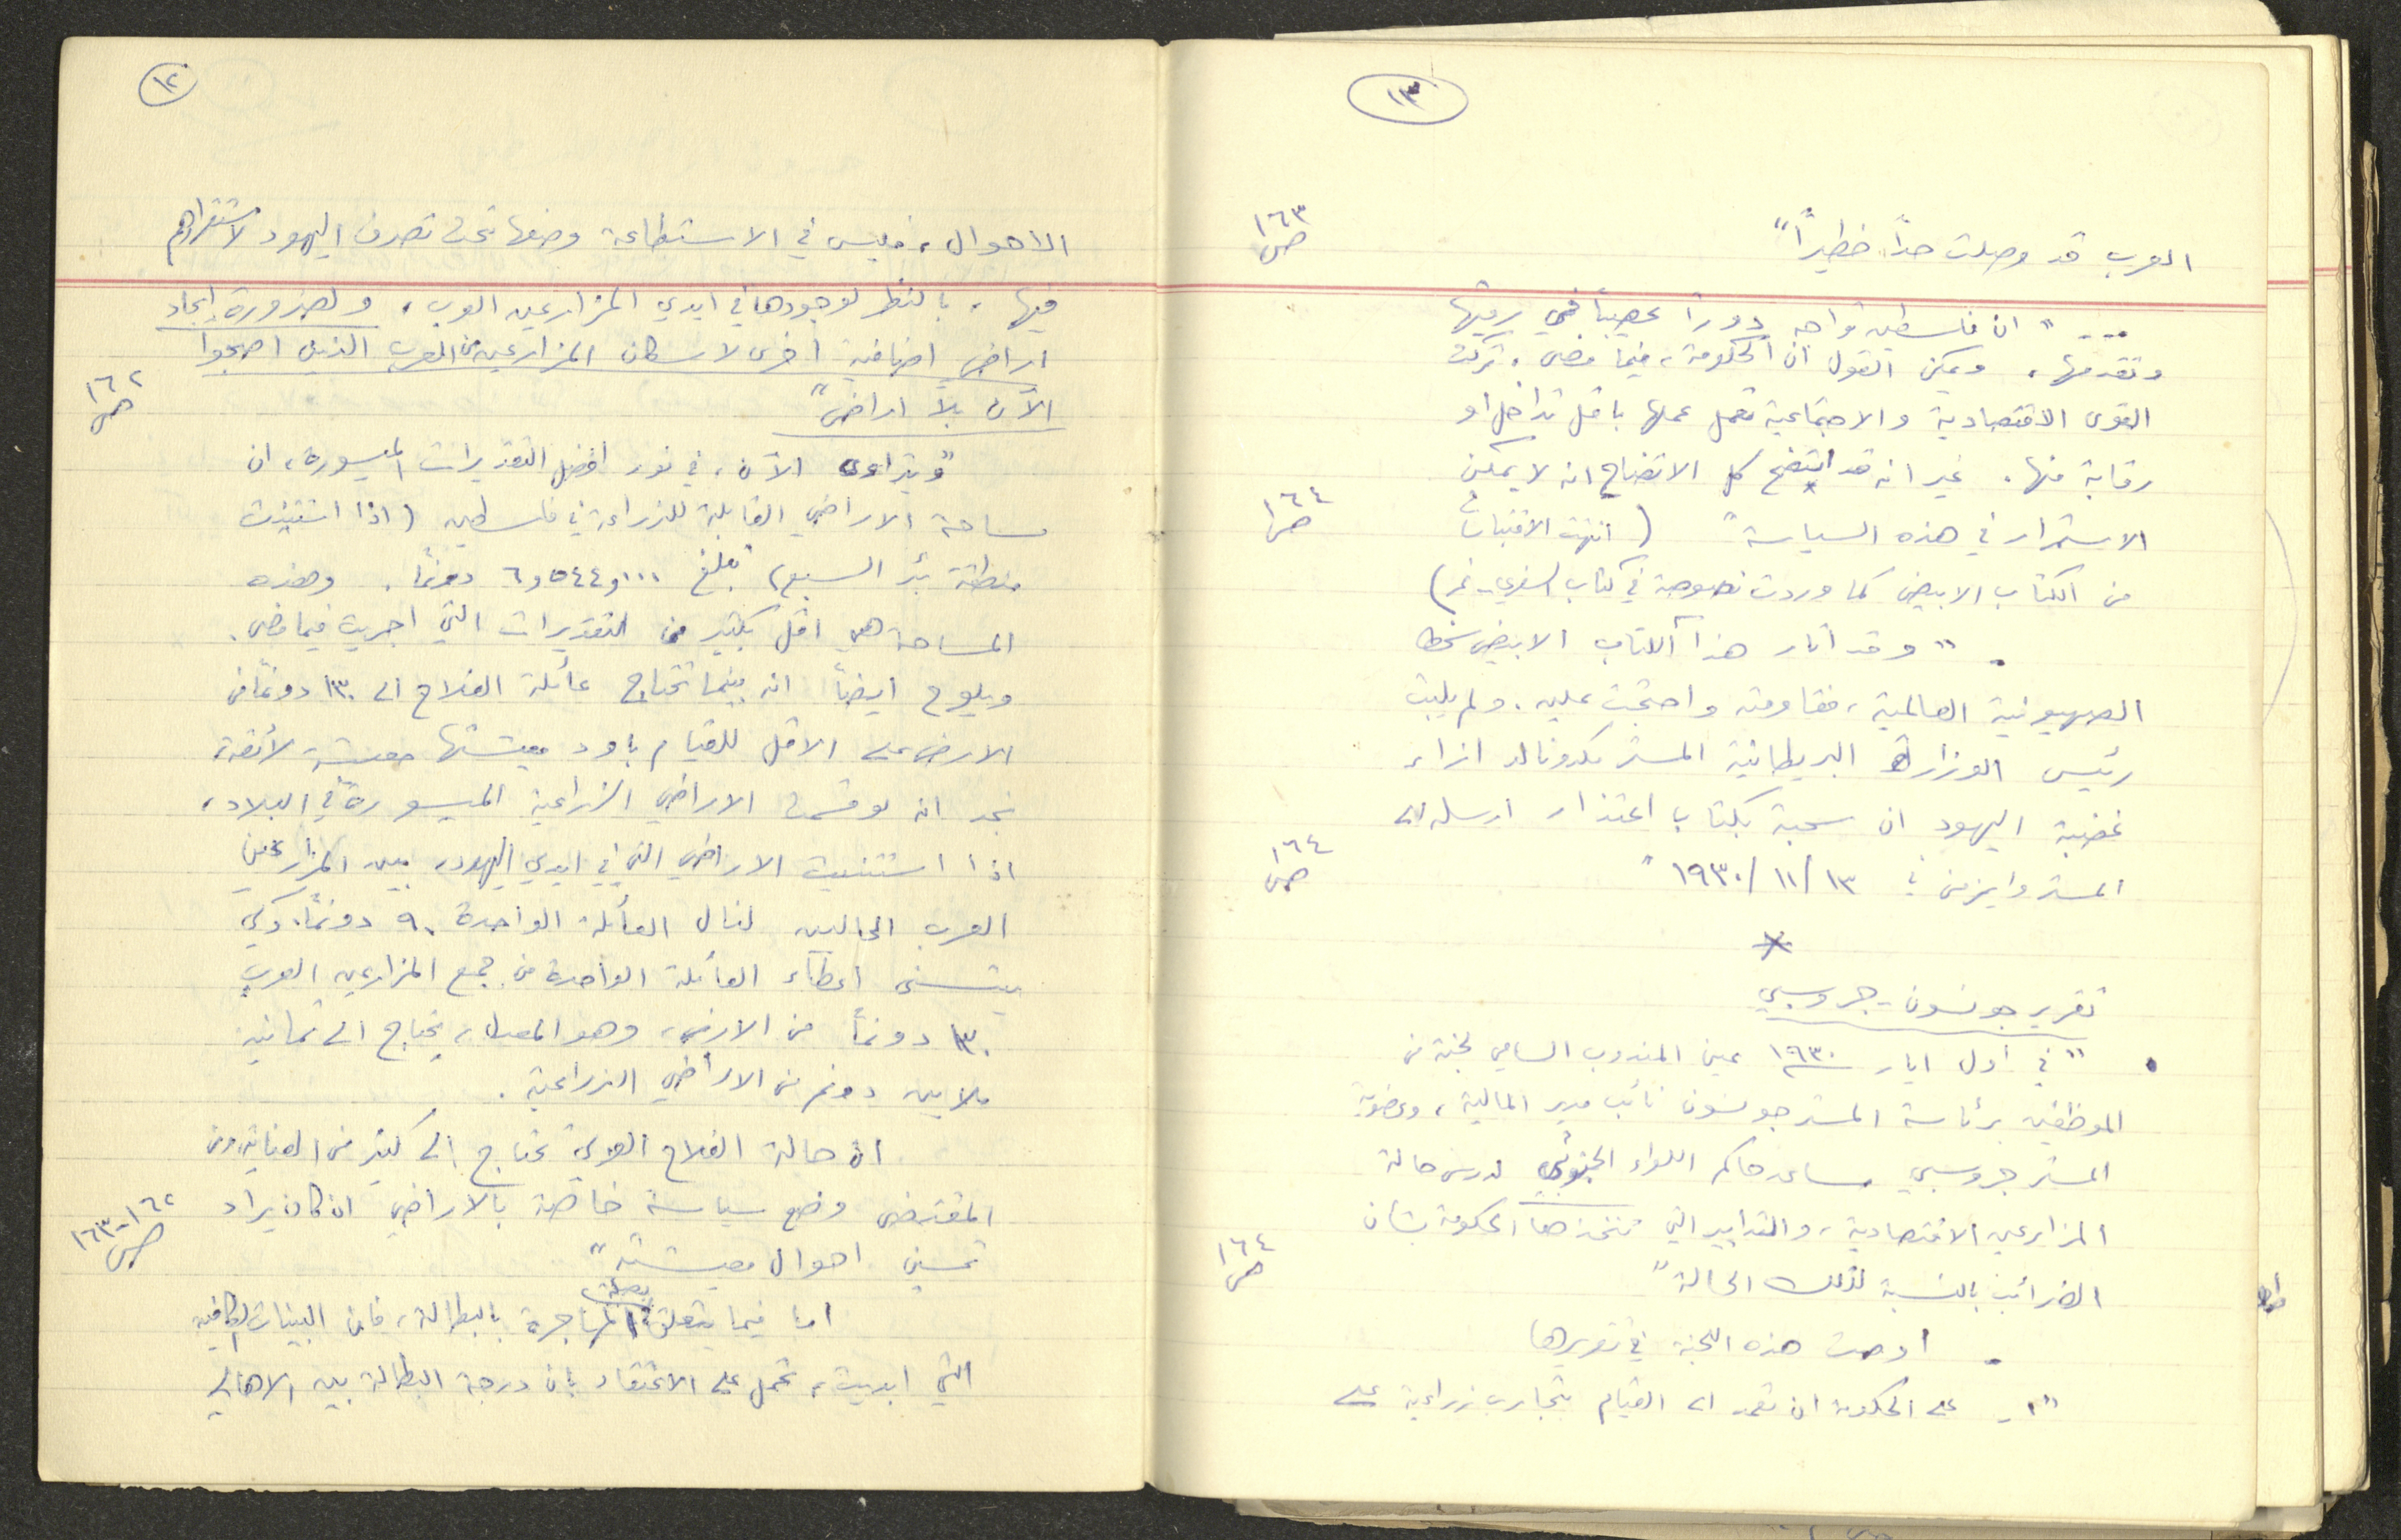 ١٢
الاحوال، فليس في الاستطاعة وضعها تحت تصرف اليهود لاستقرارهم
فيها، بالنظر لوجودها في ايدي المزارعين العرب، ولضرورة إيجاد
اراضٍ اضافية اخرى لاسكان المزارعين من العرب الذين اصبحوا
الآن بلا اراضٍ"
ص ١٦٢
"ويتراءى الآن، في نور افضل التقديرات الميسورة، ان
مساحة الاراضي القابلة للزراعة في فلسطين (اذا استثنيت
منطقة بئر السبع) تبلغ ٦٫٥٤٤٫٠٠٠ دونماً. وهذه
المساحة هي اقل بكثير من التقديرات التي اجريت فيما مضى.
ويلوح ايضاً انه بينما تحتاج عائلة الفلاح الى ١٣٠ دونماً من
الارض على الاقل للقيام باود معيشتها معيشة لائقة،
نجد انه لو قسمت الاراضي الزراعية الميسورة في البلاد،
اذا استثنيت الاراضي التي في ايدي اليهود، بين المزارعين
العرب الحاليين لنال العائلة الواحدة ٩٠ دونماً. ولكي
يتسنى اعطاء العائلة الواحدة من جميع المزارعين العرب
١٣٠ دونماً من الارض، وهو المعدل، يحتاج الى ثمانية
ملايين دونم من الاراضي الزراعية.
ان حالة الفلاح العربي تحتاج الى كثير من العناية، ومن
المقتضى وضع سياسة خاصة بالاراضي ان كان يراد
تحسين احوال معيشته"
ص ١٦٢-١٦٣
اما فيما يتعلق بصلة المهاجرة بالبطالة، فان البينات الكافية
التي ابديت، تحمل على الاعتقاد بان درجة البطالة بين الاهالي
١٣
العرب قد وصلت حداً خطيراً"
ص ١٦٣
... "ان فلسطين تواجه دوراً عصيباً في رقيها
وتقدمها. ويمكن القول ان الحكومة، فيما مضى، تركت
القوى الاقتصادية والاجتماعية تعمل عملها باقل تداخل او
رقابة منها. غير انه قد اتضح كل الاتضاح انه لا يمكن
الاستمرار في هذه السياسة" (انتهت الاقتباسات
ص ١٦٤
من الكتاب الابيض كما وردت نصوصه في كتاب السفري - نمر)
. "وقد أثار هذا الكتاب الابيض سخط
الصهيونية العالمية، فقاومته واحتجت عليه. ولم يلبث
رئيس الوزارة البريطانية المستر مكدونالد ازاء
غضبة اليهود ان سحبه بكتاب اعتذار ارسله الى
المستر وايزمن في ١٣/١١/١٩٣٠"
ص ١٦٤
*
تقرير جونسون - جروسبي
. "في اول ايار ١٩٣٠ عين المندوب السامي لجنة من
الموظفين برئاسة المستر جونسون نائب مدير المالية، وعضوية
المستر جروسبي مساعد حاكم اللواء الجنوبي لدرس حالة
المزارعين الاقتصادية، والتدابير التي تتخذها الحكومة بشان
الضرائب بالنسبة لتلك الحالة"
ص ١٦٤
. اوصت هذه اللجنة في تقريرها
"١- على الحكومة ان تعمد الى القيام بتجارب زراعية على